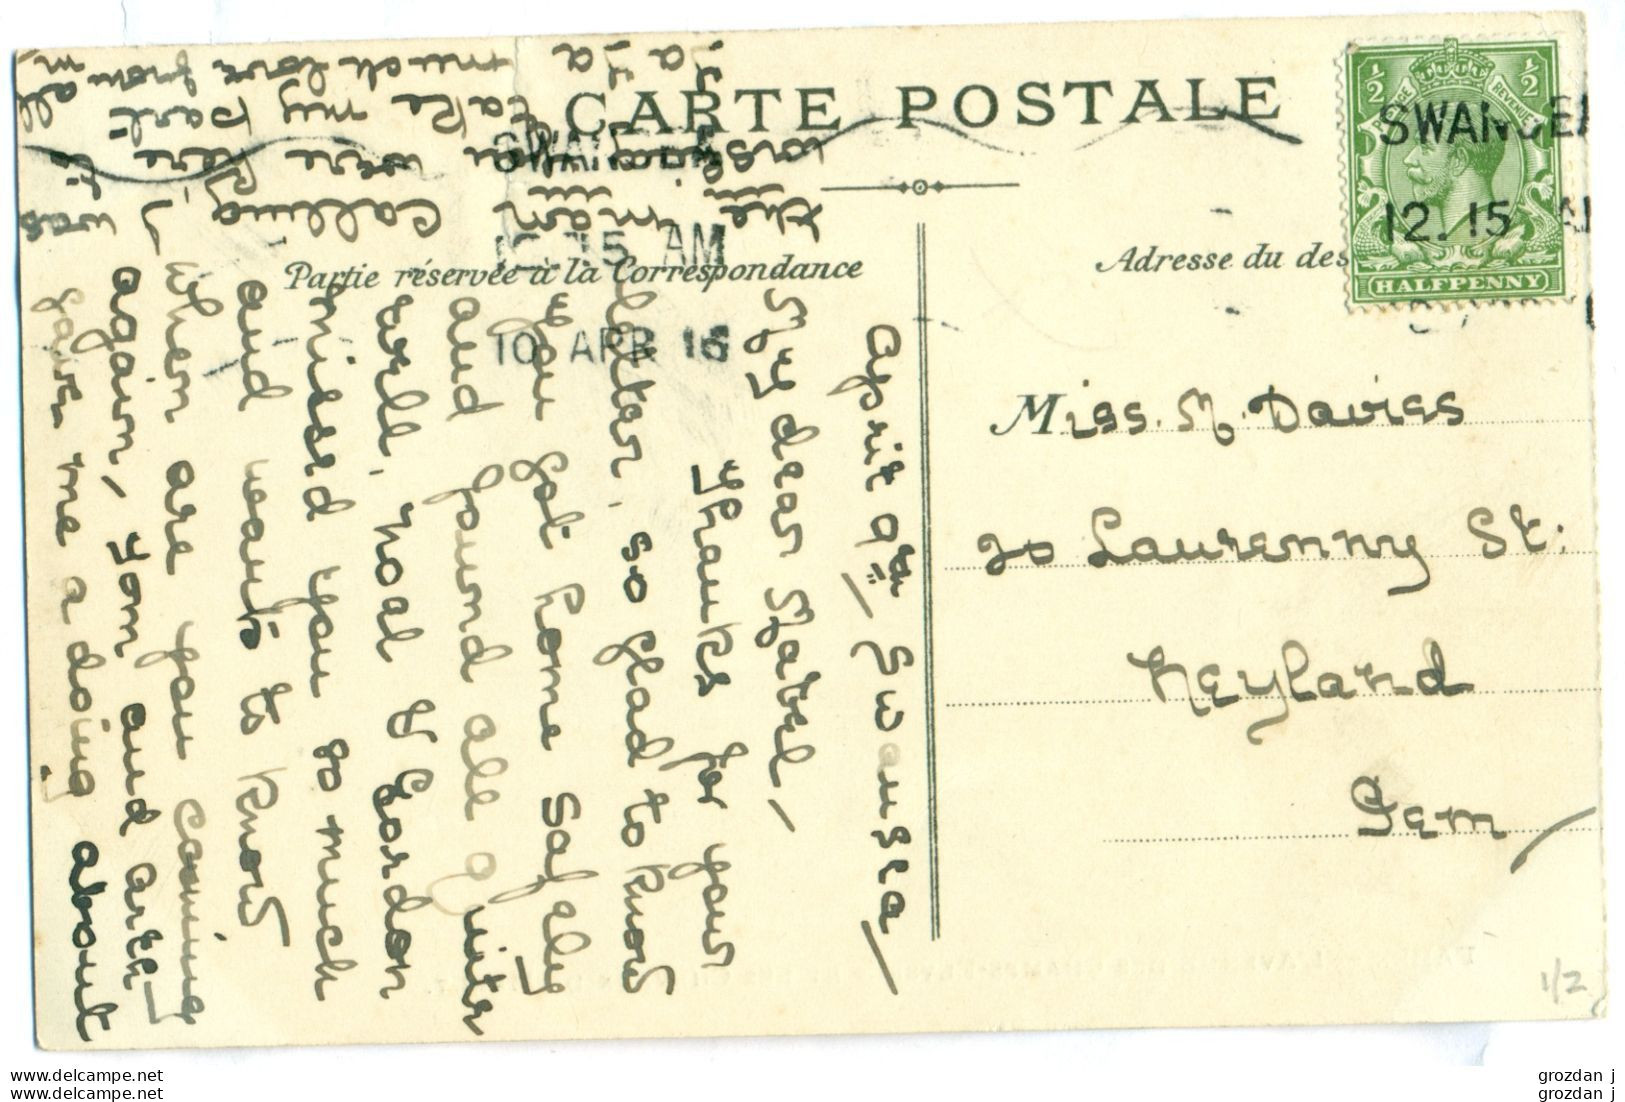 CARTE POSTALE
Partie réservée à la Correspondance
Adresse du des
½ ½
REVENUE
HALFPENNY
SWANSEA
12.15 AM
10 APR 16
SWANSEA
12.15 A
Miss. M. Davies
20 Laurenny St:
Neyland
Pem
April 9th Swansea
My dear Mabel,
Thanks for your
letter, so glad to know
you got home safely
and found all quite
well, Noal & Gordon
missed you so much
and wants to know
when are you coming
again, Tom and
gave me a doing about
the man calling, I was
were here
take my part
much love from all
xa
xa
1/2
www.delcampe.net
www.delcampe.net
grozdan j
grozdan j